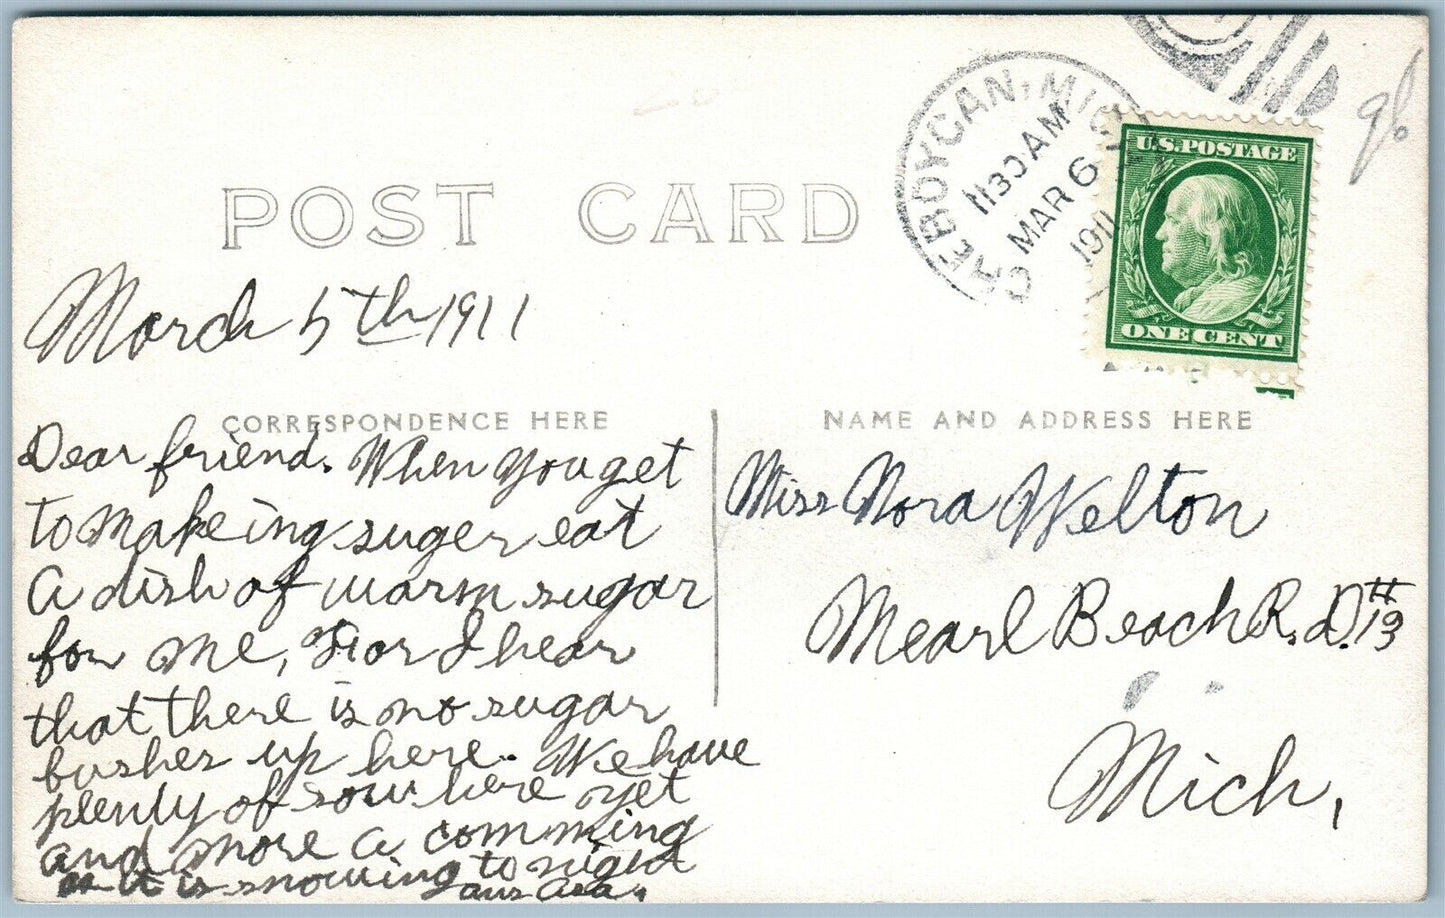 POST CARD
CHEBOYGAN, MICH
1130 AM
MAR 6
1911
U.S. POSTAGE
ONE CENT
96
March 5th 1911
CORRESPONDENCE HERE
Dear friend. When you get
to makeing suger eat
a dish of warm sugar
for me, For I hear
that there is no sugar
bushes up here. We have
plenty of snow here yet
and more a comming
as it is snowing to night
ans Asa.
NAME AND ADDRESS HERE
Miss Nora Welton
Mearl Beach R. D. #13
Mich,